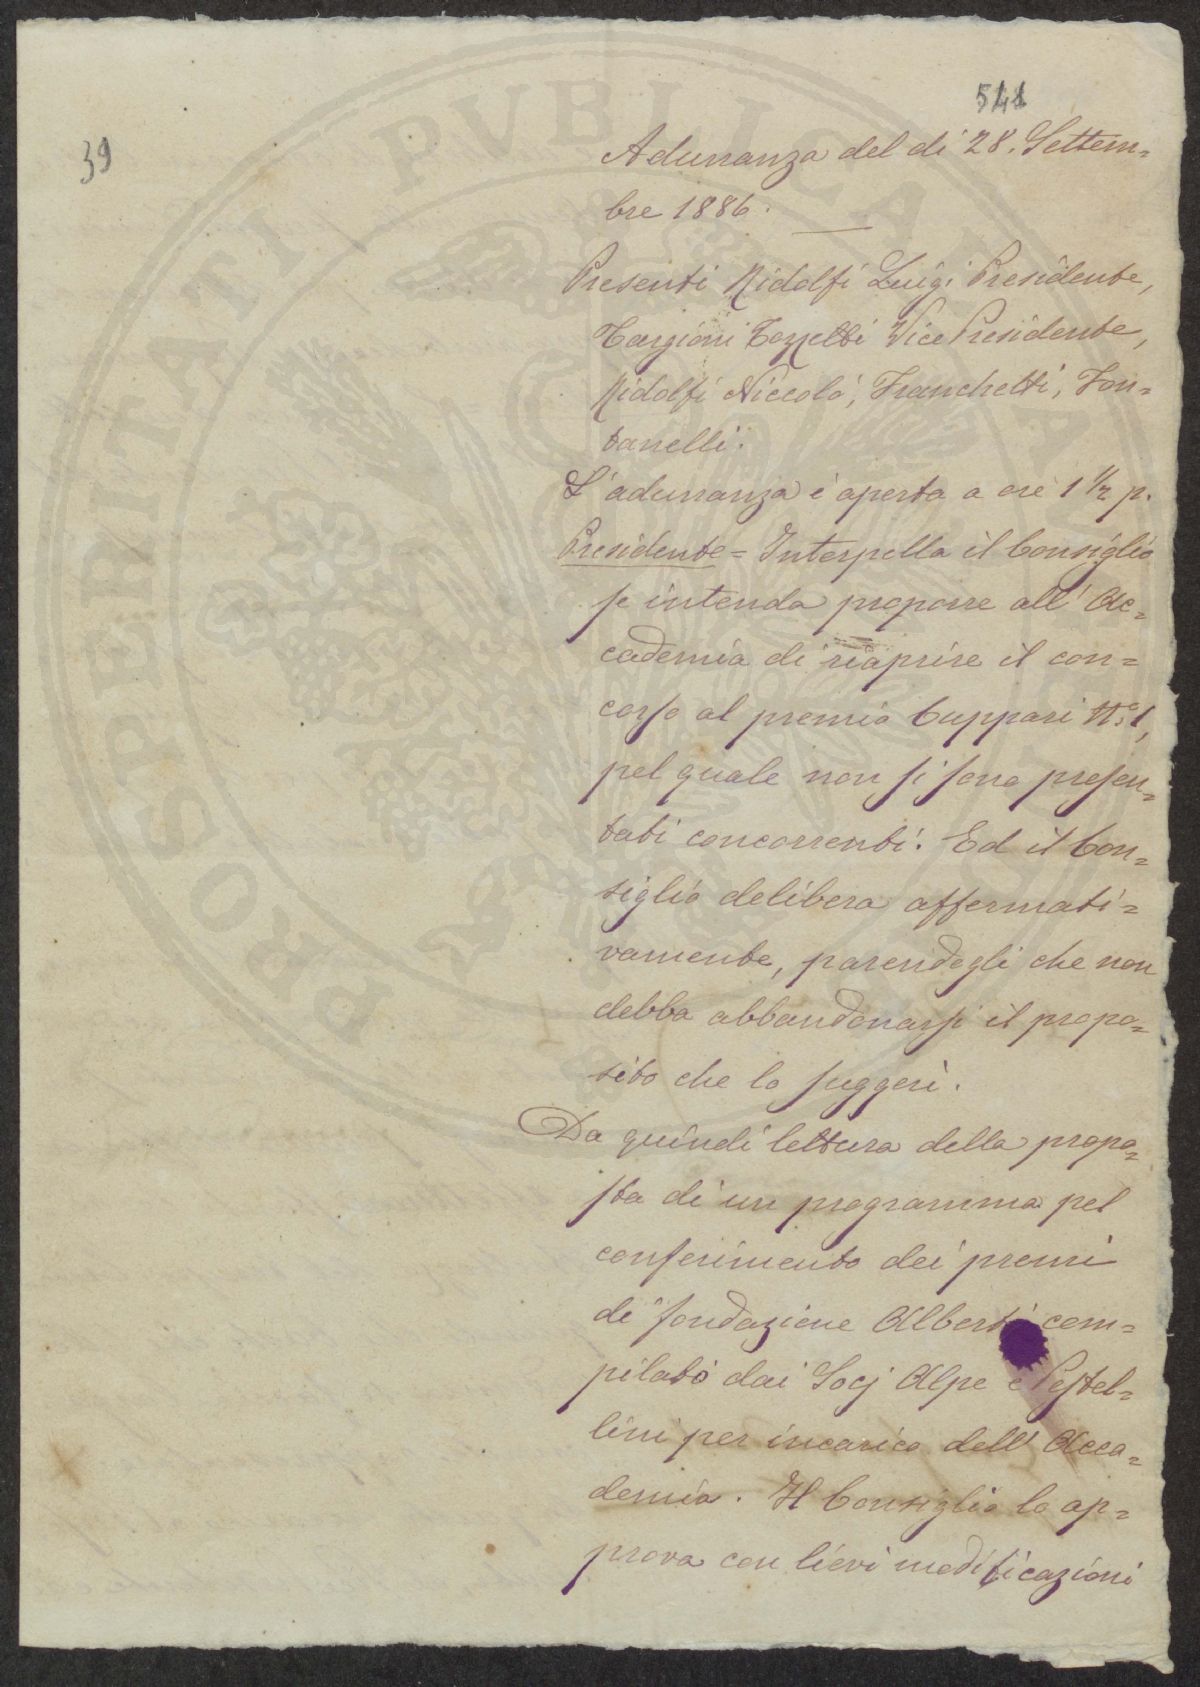 541
39
Adunanza del dì 28. Settem=
bre 1886.
Presenti Ridolfi Luigi Presidente,
Targioni Tozzetti Vice Presidente,
Ridolfi Niccolò, Franchetti, Fon=
tanelli.
L'adunanza è aperta a ore 1 1/2 p.
Presidente = Interpella il Consiglio
se intenda proporre all' Ac=
cademia di riaprire il con=
corso al premio Cuppari N.° 1,
pel quale non si sono presen=
tati concorrenti. Ed il Con=
siglio delibera affermati=
vamente, parendogli che non
debba abbandonarsi il propo=
sito che lo suggerì.
Da quindi lettura della propo=
sta di un programma pel
conferimento dei premi
di fondazione Alberti com=
pilato dai Socj Alpe e Pestel=
lini per incarico dell' Acca=
demia. Il Consiglio lo ap=
prova con lievi modificazioni
PROSPERITATI PVBLICAE